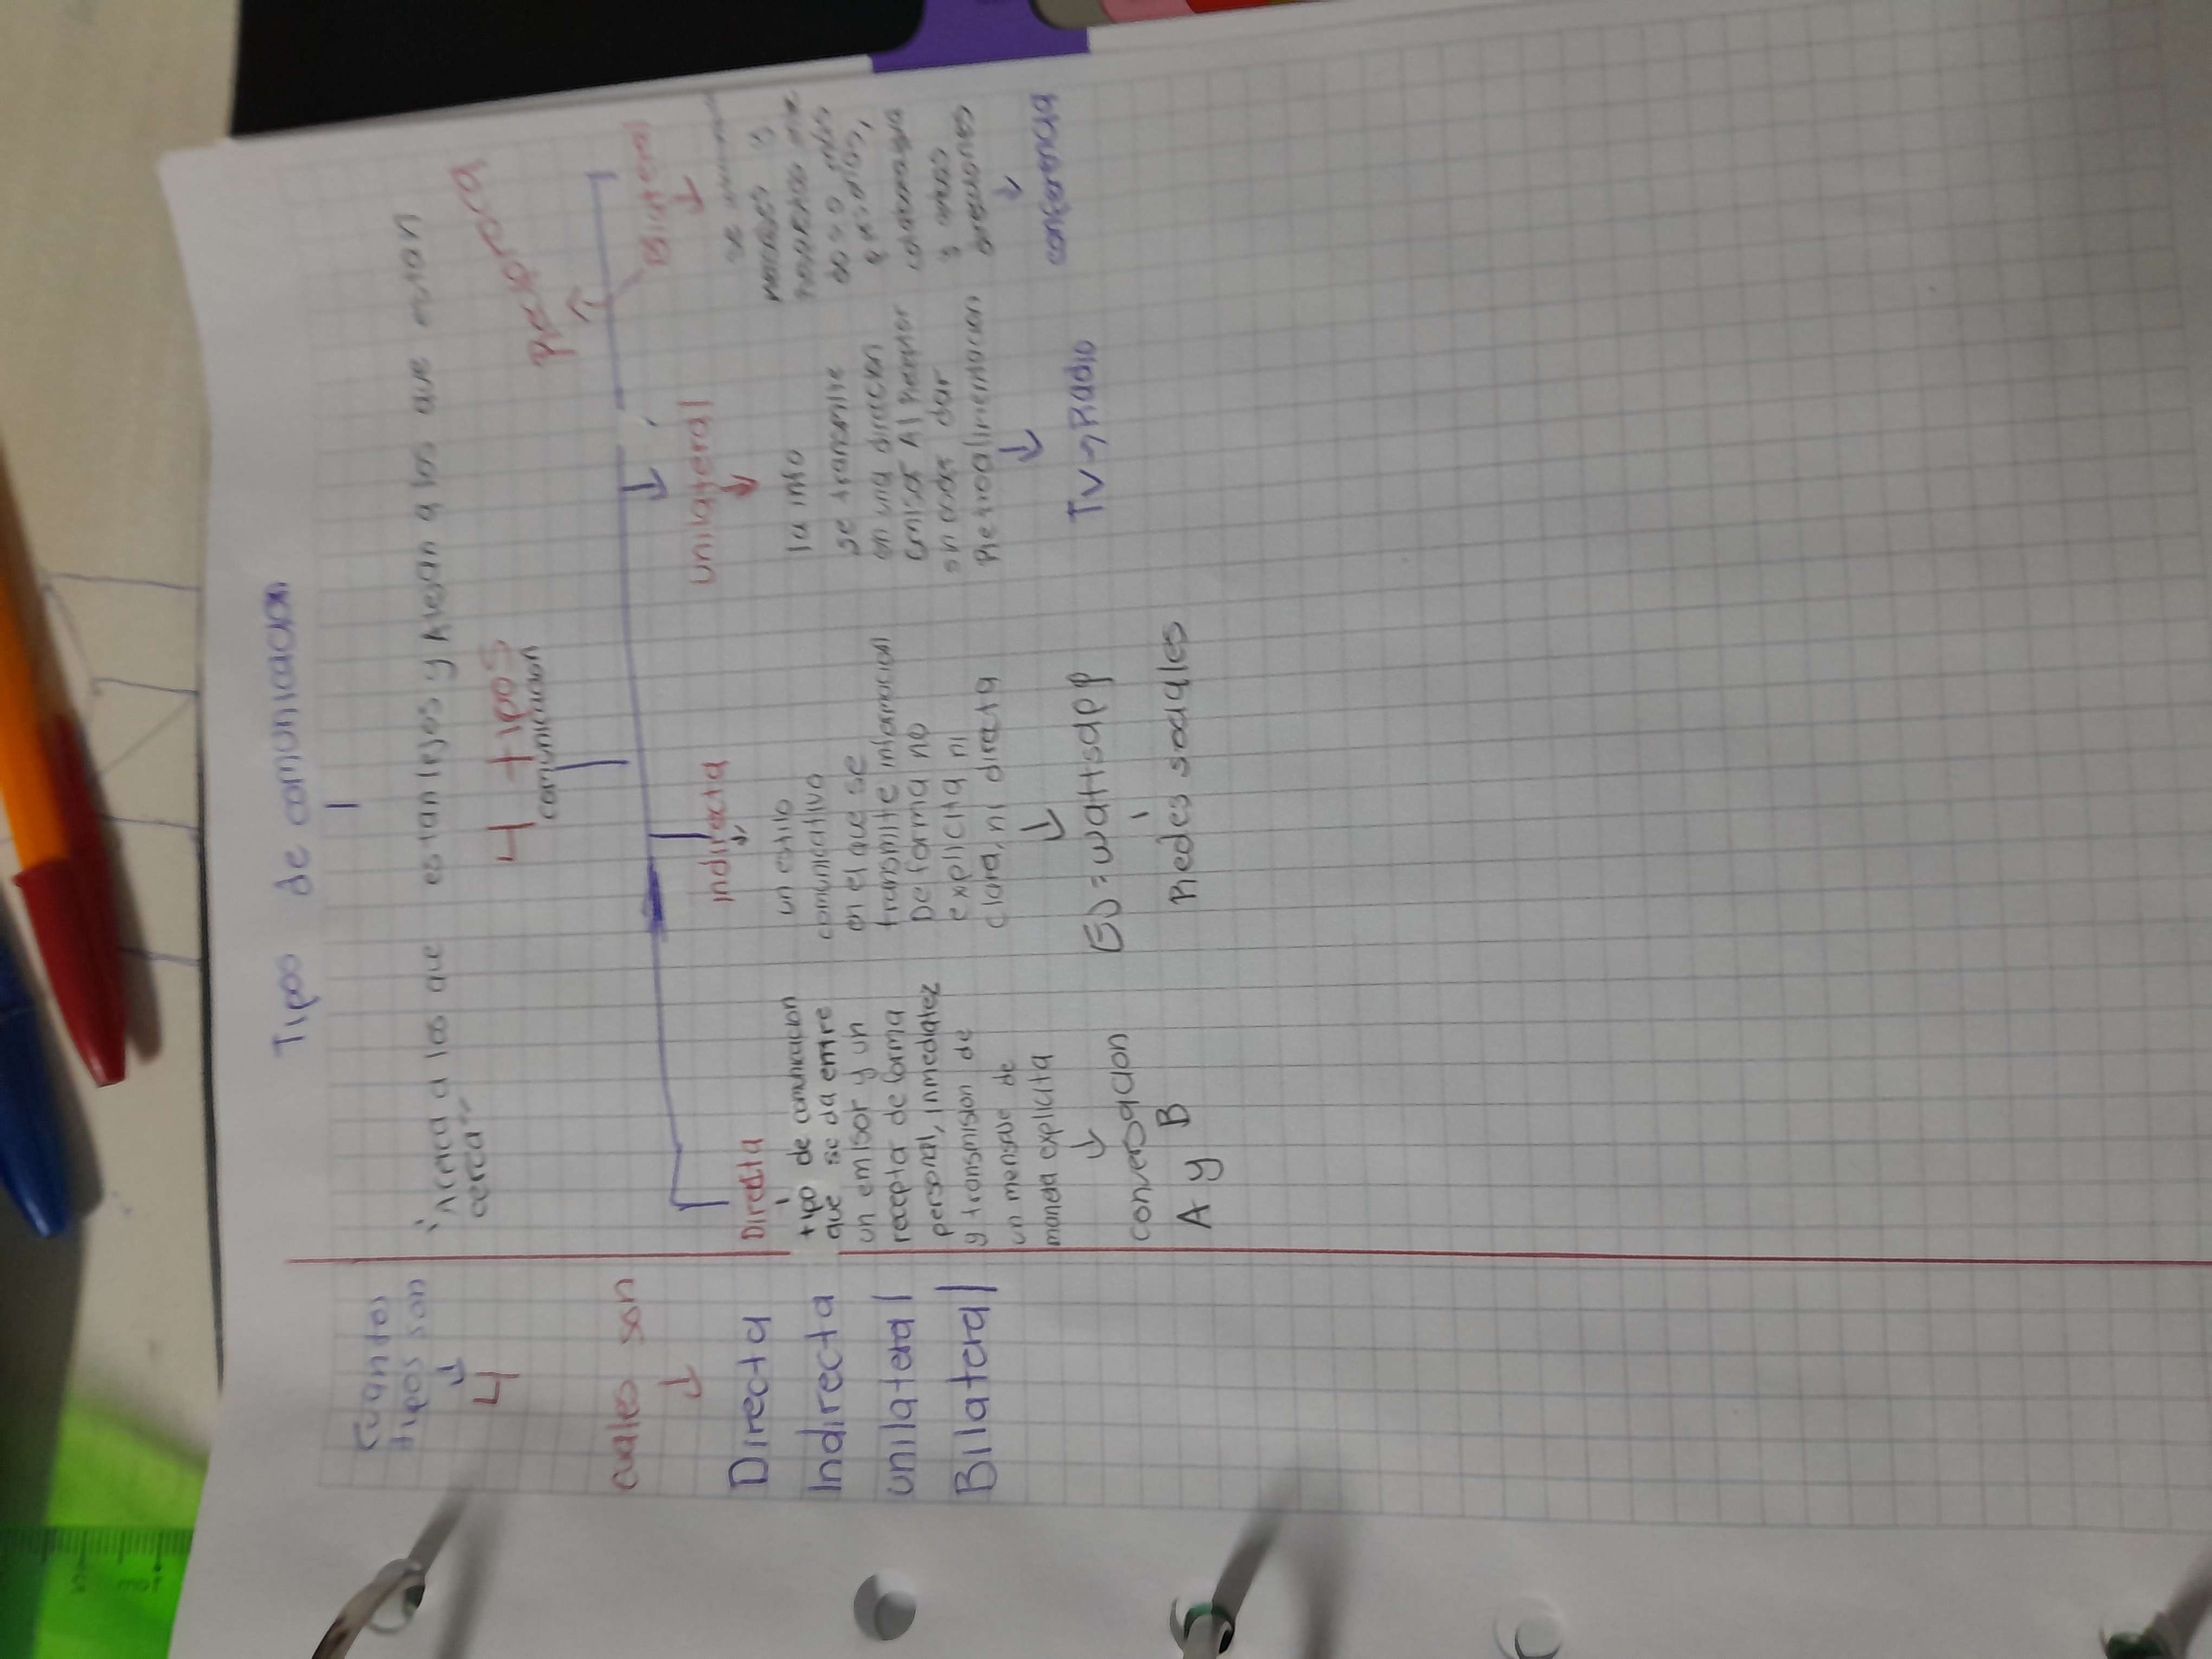 Tipos de comunicacion
"Acerca a los que estan lejos y Alejan a los que estan
cerca"
Cuantos
tipos son
4
cuales son
Directa
Indirecta
unilateral
Bilateral
4 tipos
comunicacion
Reciproca
Directa
tipo de comunicacion
que se da entre
un emisor y un
receptor de forma
personal, inmediatez
y transmision de
un mensaje de
manera explicita
conversacion
A y B
indirecta
un estilo
comunicativo
en el que se
transmite informacion
De forma no
explicita ni
clara, ni directa
EJ = wattsapp
Redes sociales
unilateral
la info
se transmite
en una direccion
emisor Al Receptor
sin poder dar
Retroalimentacion
TV Radio
Bilateral
se
mensajes y
entre
dos o más
partidos,
colaborativa
y
conferencia